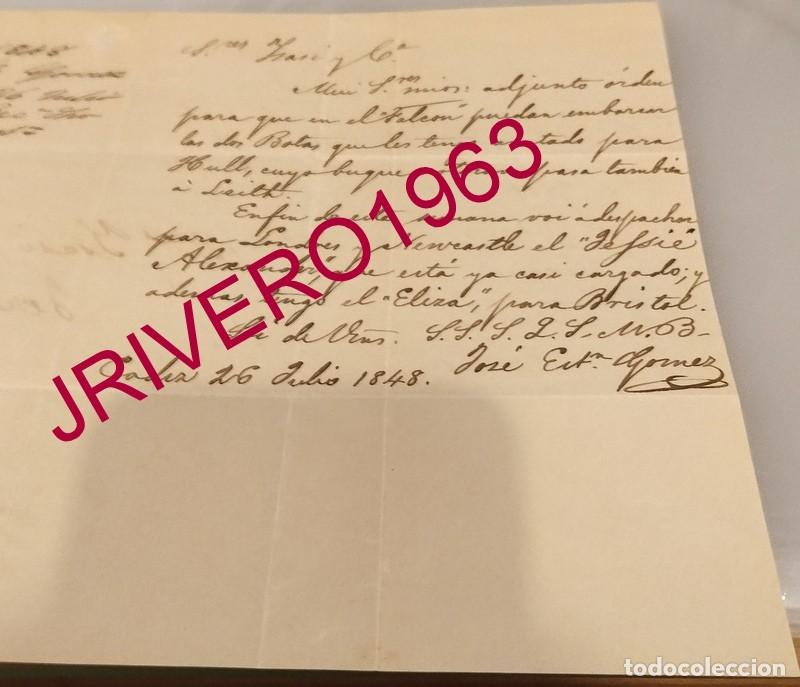 S.res Isasi y C.a
Mui S.res mios: adjunto órden
para que en el "Falcon" puedan embarcar
las dos Botas que les tengo tado para
Hull, cuyo buque pasa tambien
á Leith.
Enfin de esta semana voi á despachar
para Londres y Newcastle el "Jessie
Alexander," que está ya casi cargado; y
ademas tengo el "Eliza", para Bristol.
de Vms. S.S.S. Q.S.M.B.
José Est.n Gomez
Cadiz 26 Julio 1848.
JRIVERO1963
todocoleccion